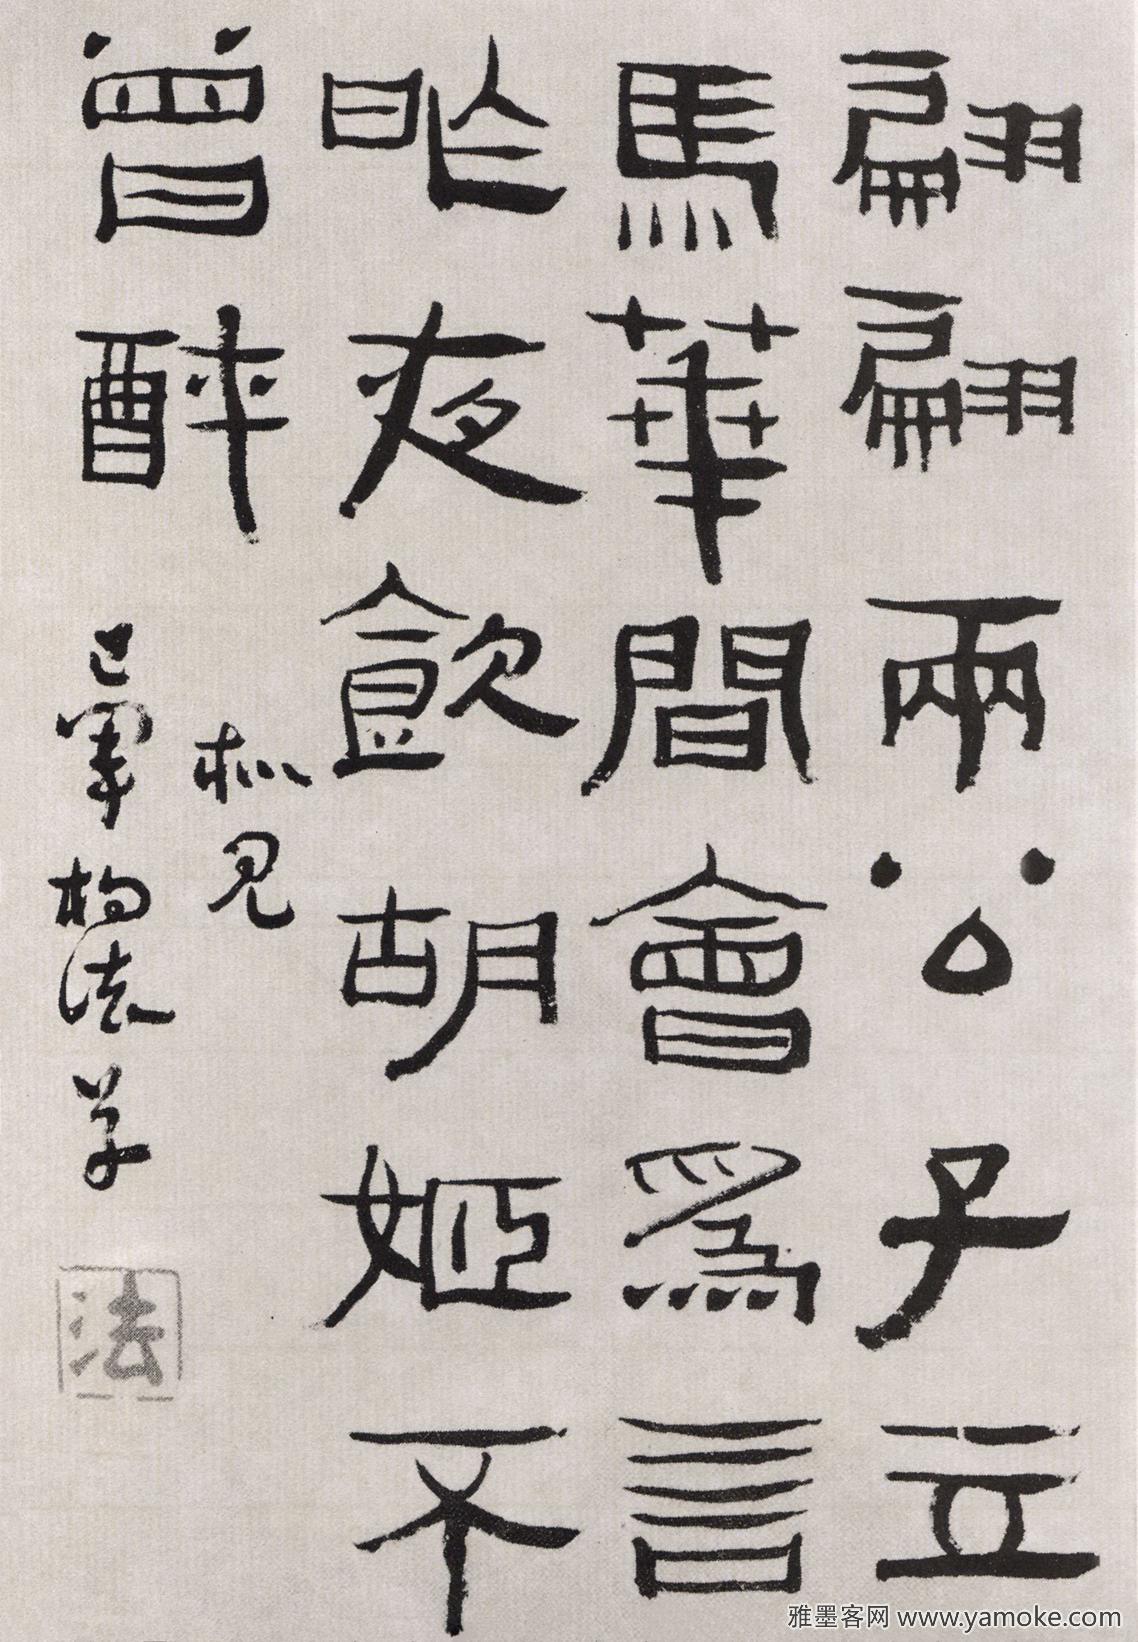 翩翩兩公子立
馬華間會爲言
昨夜飲胡姬不
曾醉
林見
法
雅墨客网 www.yamoke.com